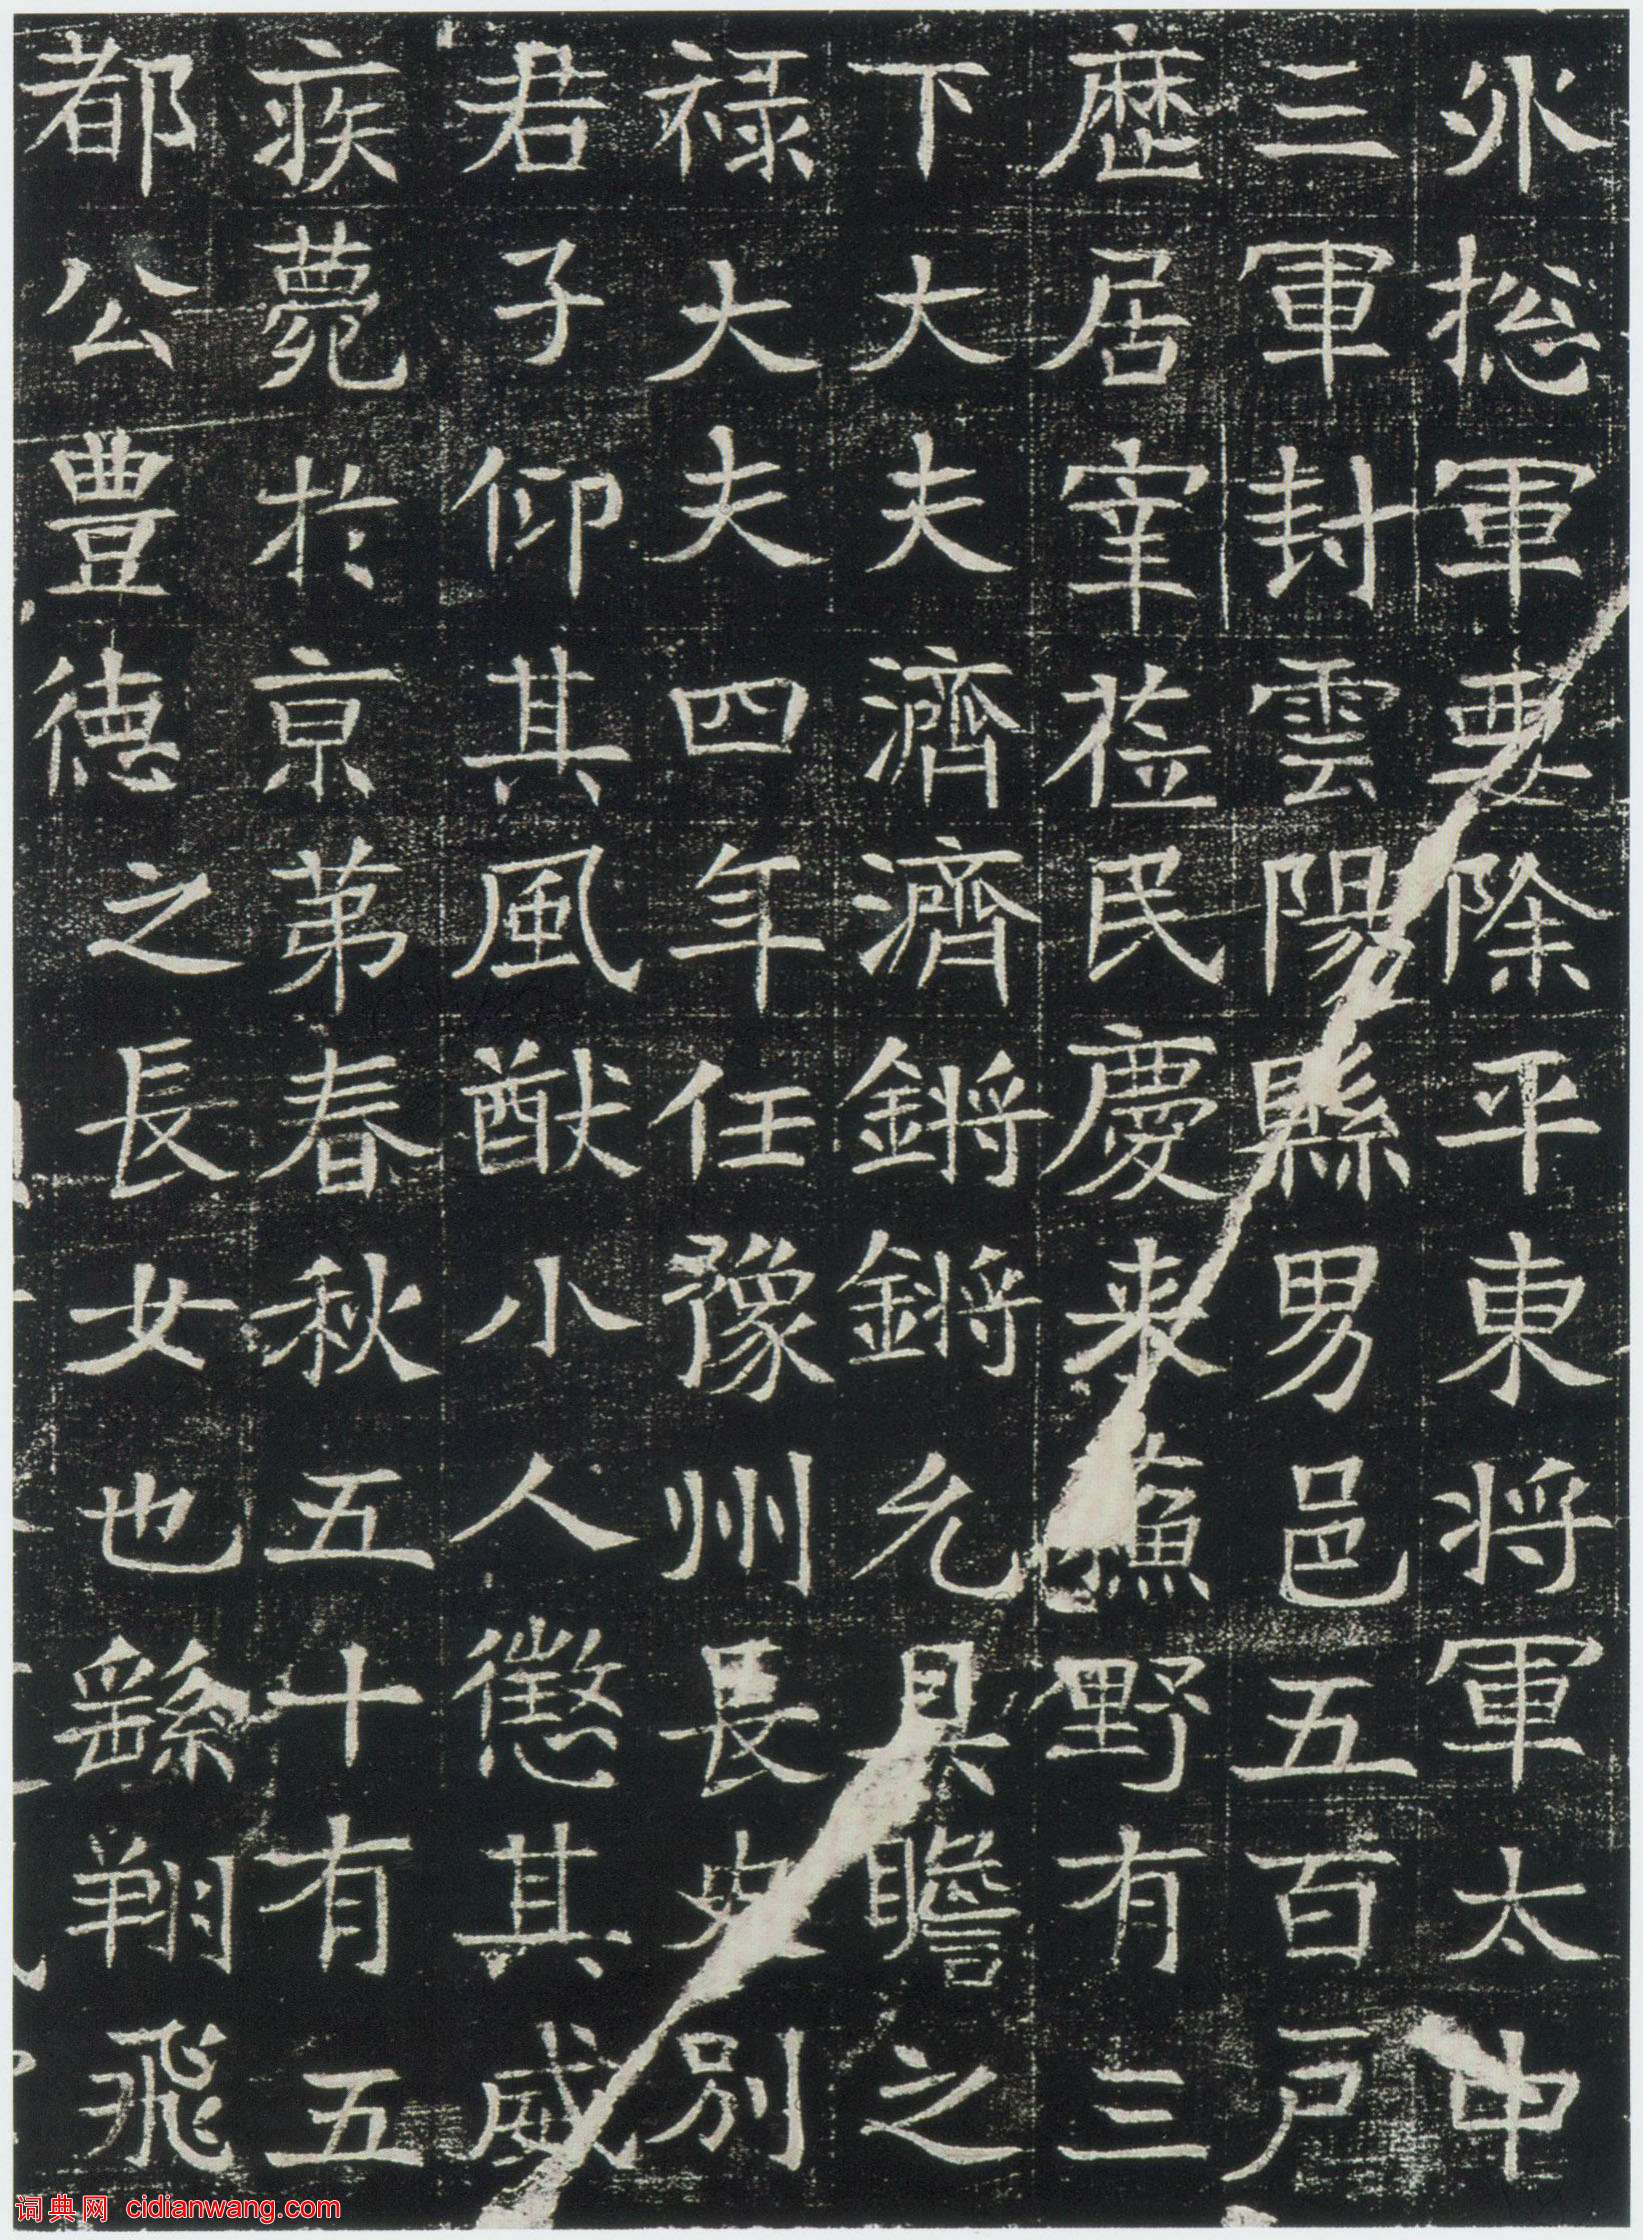 揔軍要除平東将軍太中
三軍封雲陽縣男邑五百戸
歴居宰莅民慶来蘓野有三
下大夫濟濟鏘鏘允具瞻之
禄大夫四年任豫州長史別
君子仰其風猷小人懲其威
疾薨於京第春秋五十有五
都公豊德之長女也繇翔飛
词典网 cidianwang.com